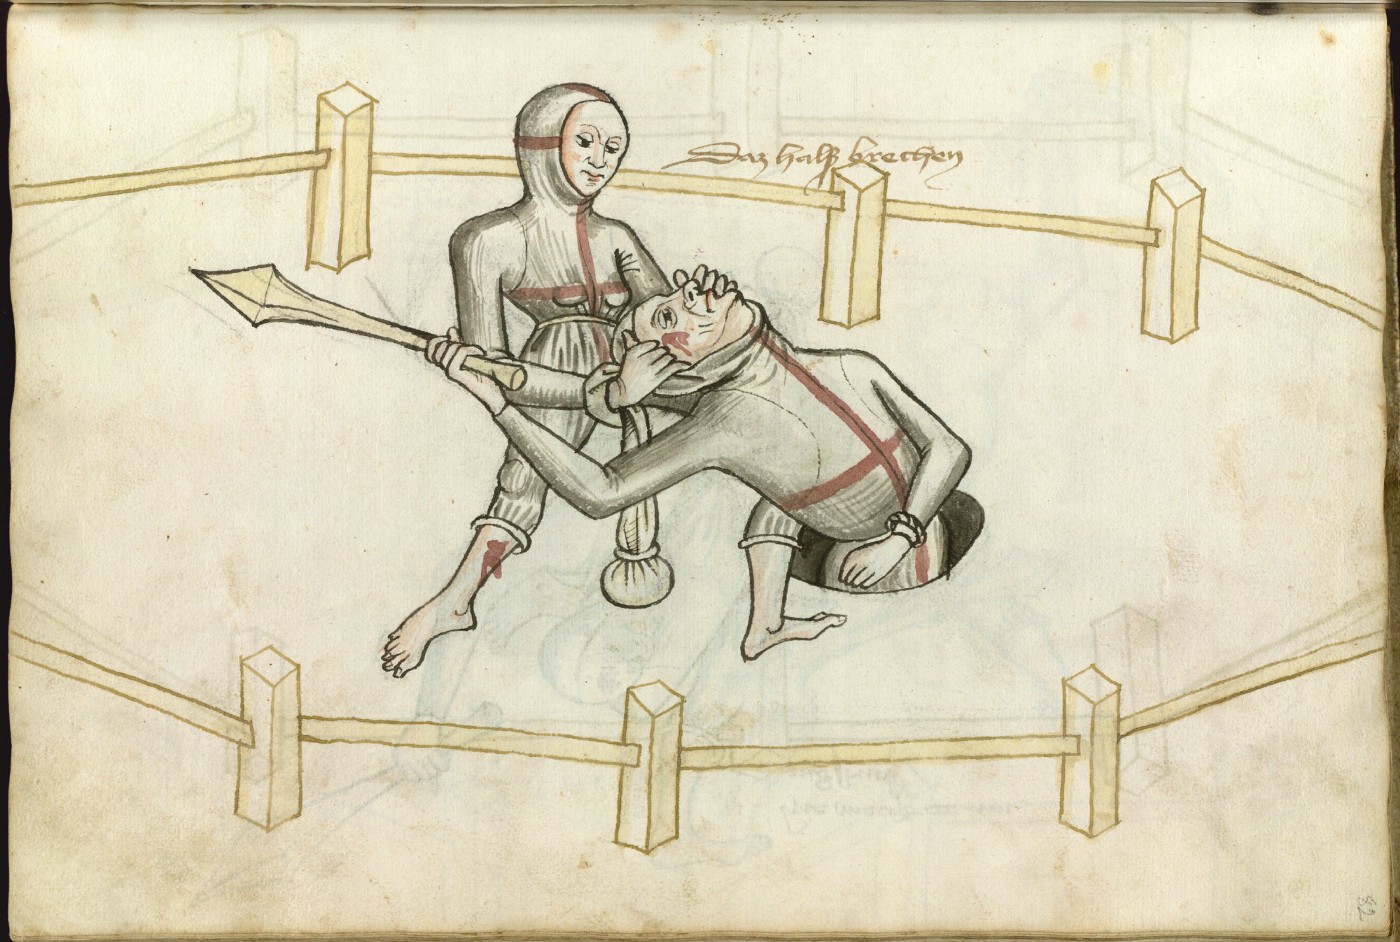 Daz halß brechen
82